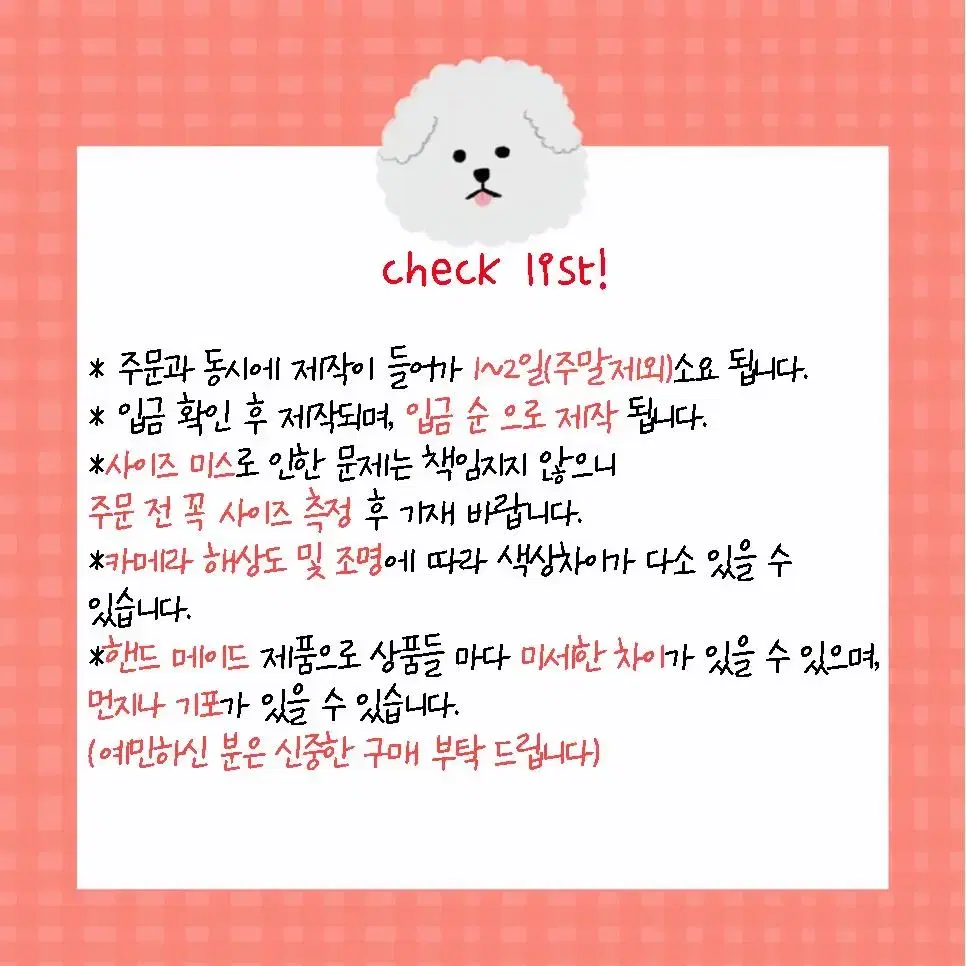 check list!
* 주문과 동시에 제작이 들어가 1~2일(주말제외)소요 됩니다.
* 입금 확인 후 제작되며, 입금 순 으로 제작 됩니다.
*사이즈 미스로 인한 문제는 책임지지 않으니
주문 전 꼭 사이즈 측정 후 기재 바랍니다.
*카메라 해상도 및 조명에 따라 색상차이가 다소 있을 수
있습니다.
*핸드 메이드 제품으로 상품들 마다 미세한 차이가 있을 수 있으며,
먼지나 기포가 있을 수 있습니다.
(예민하신 분은 신중한 구매 부탁 드립니다)